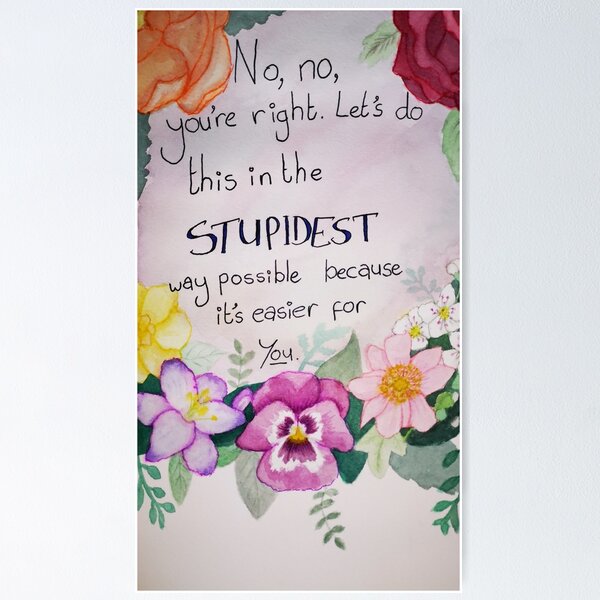 No, no,
you're right. Let's do
this in the
STUPIDEST
way possible because
it's easier for
You.